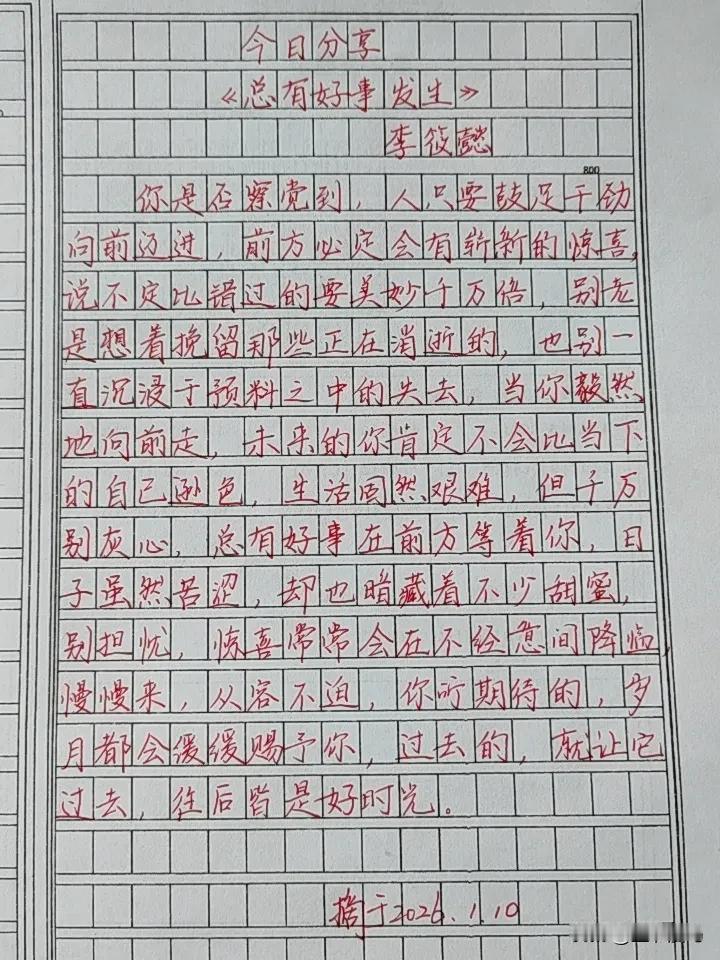 今日分享
《总有好事发生》
李筱懿
800
你是否察觉到，人只要鼓足干劲
向前迈进，前方必定会有崭新的惊喜，
说不定比错过的要美妙千万倍，别老
是想着挽留那些正在消逝的，也别一
直沉浸于预料之中的失去，当你毅然
地向前走，未来的你肯定不会比当下
的自己逊色，生活固然艰难，但千万
别灰心，总有好事在前方等着你，日
子虽然苦涩，却也暗藏着不少甜蜜，
别担忧，惊喜常常会在不经意间降临，
慢慢来，从容不迫，你所期待的，岁
月都会缓缓赐予你，过去的，就让它
过去，往后皆是好时光。
摘于2026.1.10